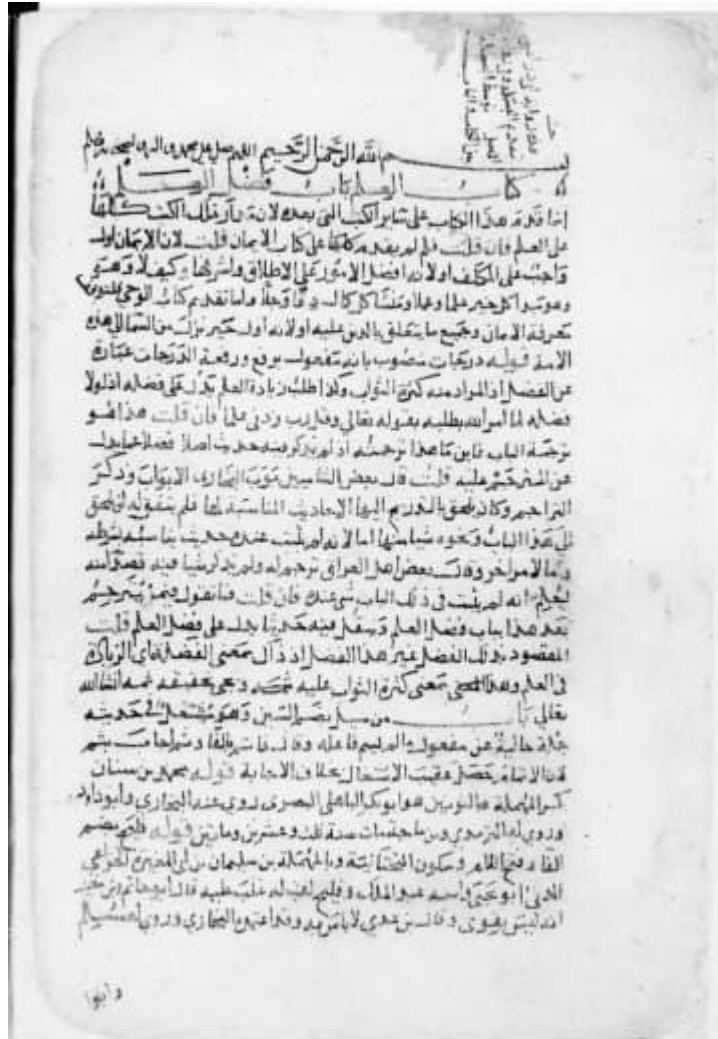 بسم الله الرحمن الرحيم اللهم صل على محمد وآله وصحبه وسلم
كتاب العلم باب فضل العلم
إنما قدم هذا الكتاب على سائر الكتب التي بعده لان مدار تلك الكتب كلها
على العلم فان قلت فلم لم يقدم على كتاب الايمان قلت لان الايمان اول
واجب على المكلف اولانه افضل الامور على الاطلاق واشرفها وكيف لا وهو
ومبدأ كل خير علما وعملا ومنشأ كل كمال دقا وجلا واما تقديم كتاب الوحي فلتوقف
معرفة الايمان وجميع ما يتعلق بالدين عليه اولانه اول خير نزل من السما الى هذه
الامة قوله درجات منصوب بانه مفعول يرفع ورفعة الدرجات عبارة
عن الفضل اذ المراد منه كثرة الثواب وكذا طلب زيادة العلم يدل على فضله اذ لولا
فضله لما امر الله بطلبه بقوله تعالى وقل رب زدني علما فان قلت هذا هو
ترجمة الباب فاين ما هذا ترجمته اذ لم يذكر فيه حديث اصلا فضلا عما يدل
على قلت قال بعض الشاميين بوب البخاري الابواب وذكر
التراجم وكان يلحق بالتدريج اليها الاحاديث المناسبة لها فلم يتفق له ان يلحق
الى هذا الباب ونحوه شيا منها اما لانه لم يثبت عنده حديث يناسبه بشرطه
واما لامر اخر وقال بعض اهل العراق ترجم له ولم يذكر شيا فيه قصدا منه
ليعلم انه لم يثبت في ذلك الباب شي عنده فان قلت فما تقول فيما يترجم
بعد هذا بباب فضل العلم وينقل فيه حديثا يدل على فضل العلم قلت
المقصود بذلك الفضل غير هذا الفضل اذ ذاك بمعنى الفضلة اي الزيادة
في العلم وهذا بمعنى كثرة الثواب عليه ويجي تحقيقه ثمه ان شا الله
تعالى باب من سئل بضم السين وهو مشتغل في حديثه
جملة حالية عن مفعول ما لم يسم فاعله وقال فاتم بالفا وثم اجاب بثم
لان الاتمام حصل عقيب الاشتغال بخلاف الاجابة قوله محمد بن سنان
كسر المهملة وبالنونين هو ابو بكر الباهلي البصري روى عنه البخاري وأبو داود
وروى له الترمذي وبن ماجة مات سنة ثلث وعشرين ومايتين قوله فليح بضم
الفا وفتح اللام وسكون التحتانية وبالمهملة بن سليمان بن ابي المغيرة الخزاعي
المدني ابو يحيى واسمه عبد الملك وفليح لقب له غلب عليه قال ابو حاتم وبن معين
انه ليس بقوي وقال بن عدي لا باس به وقد اعتمده البخاري وروى له مسلم
وابوا